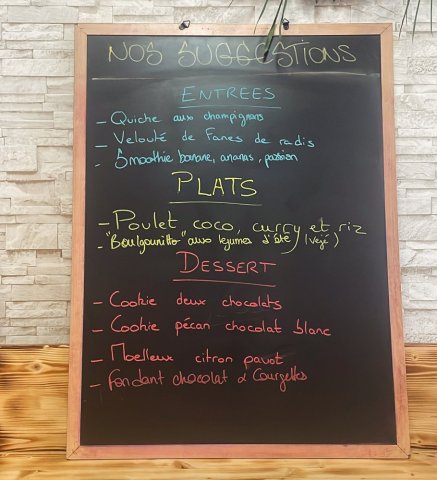 NOS SUGGESTIONS
ENTREES
- Quiche aux champignons
- Velouté de Fanes de radis
- Smoothie banane, ananas, passion
PLATS
- Poulet coco, curry et riz
- "Boulgounitto" aux légumes d'été (végé)
DESSERT
- Cookie deux chocolats
- Cookie pécan chocolat blanc
- Moelleux citron pavot
- Fondant chocolat & Courgettes